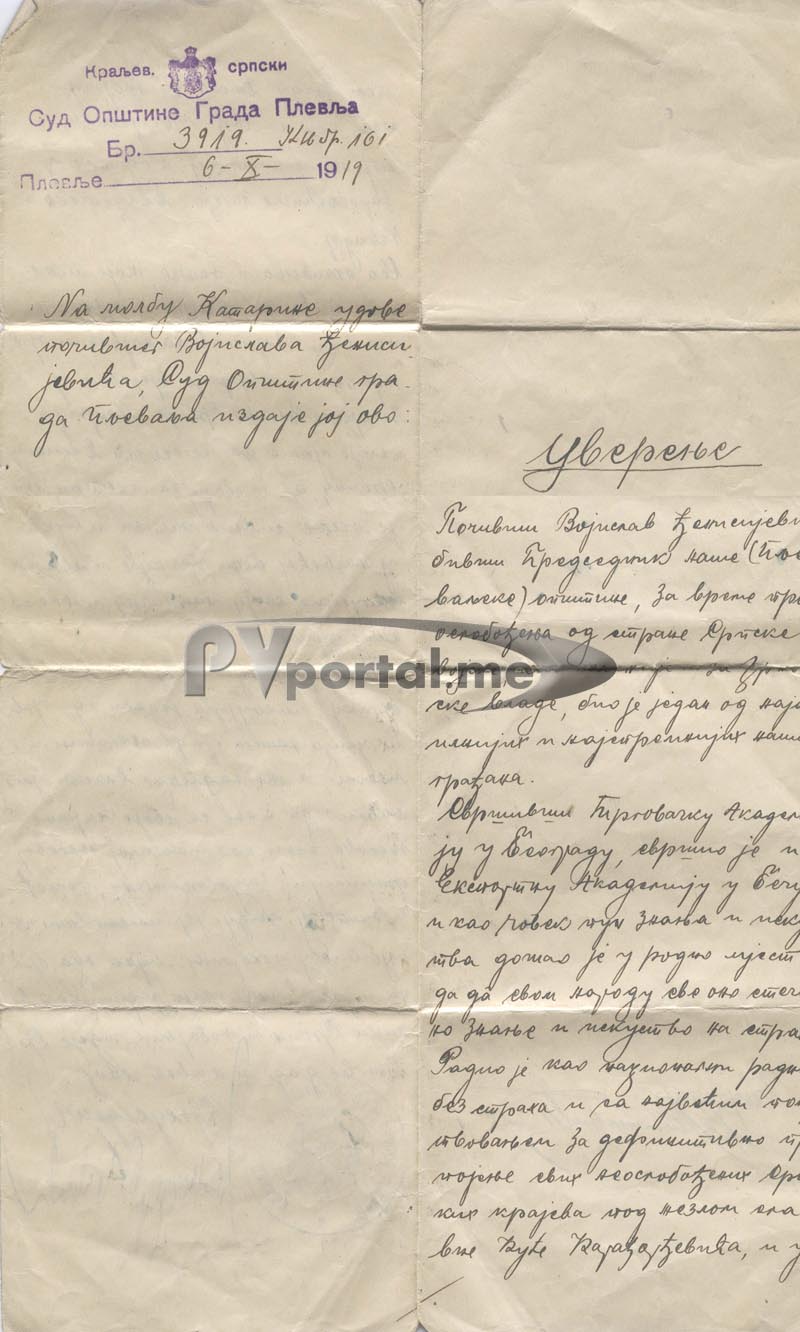 Краљев. српски
Суд Општине Града Плевља
Бр. 3919. Књ бр. 101
Плевље 6-X- 1919
На молбу Катарине удове
почившег Војислава Ђениси
јевића, Суд Општине гра-
да Пљеваља издаје јој ово:
Уверење
Почивши Војислав Ђенисијеви
бивши Председник наше (Пље
ваљске) општине, за време
ослобођења од стране Српске
PVportal.me
ске владе, био је један од
и најстремнијих
грађана.
Свршивши Трговачку Академ
ју у Београду, свршио је и
Експортну Академију у Бечу
и као човек пун знања и иску
тва дошао је у родно мјест
да да свом народу све оно стеч
но знање и искуство на стра
Радио је као национални радн
без страха и са највећим пож
твовањем за дефинитивно
свих неослобођених Срп
ких крајева под жезлом сла
вне Куће Карађорђевића, и у